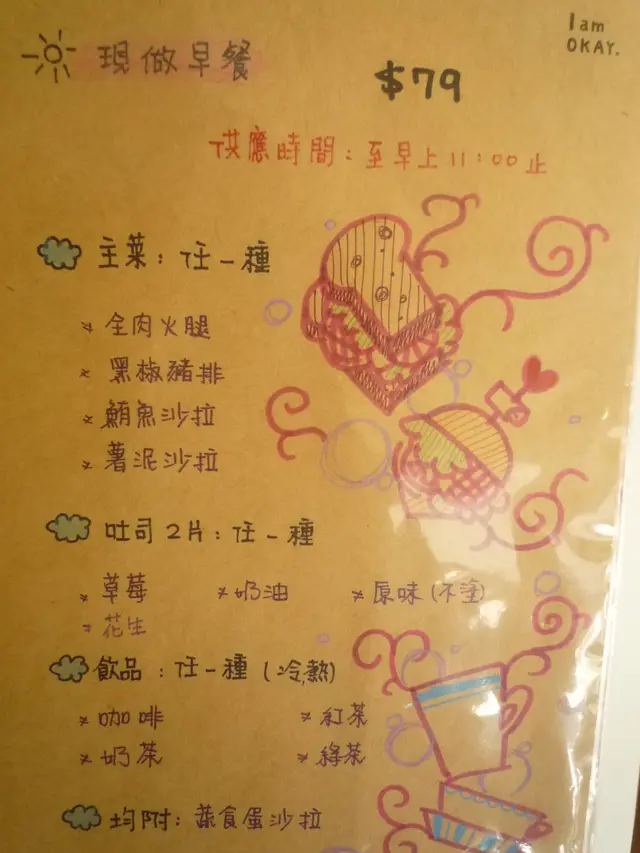 I am
OKAY.
現做早餐
$79
供應時間：至早上11:00止
主菜：任一種
全肉火腿
黑椒豬排
鮪魚沙拉
薯泥沙拉
吐司2片：任一種
草莓 奶油 原味(不塗)
花生
飲品：任一種(冷,熱)
咖啡 紅茶
奶茶 綠茶
均附：蔬食蛋沙拉